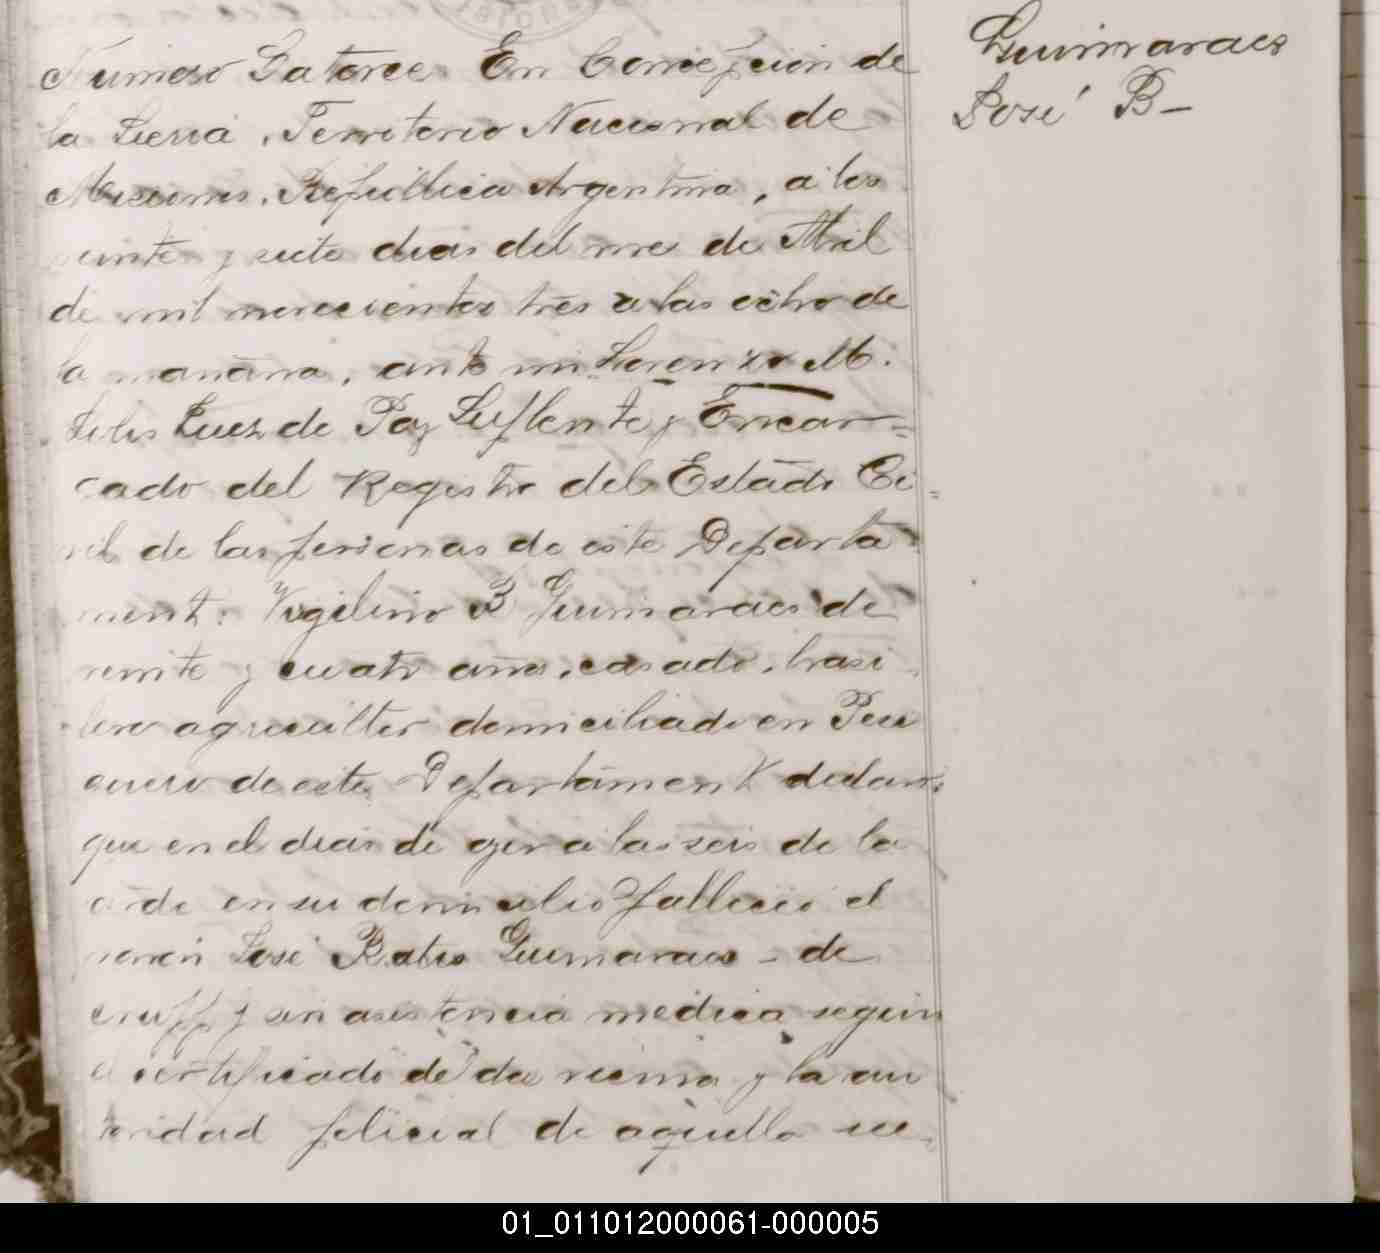 Guimaraes
José B-
Numero Catorce. En Concepcion de
la Sierra, Territorio Nacional de
Misiones, Republica Argentina, a los
veinte y siete dias del mes de Abril
de mil novecientos tres a las ocho de
la mañana, ante mi Lorenzo M.
Juez de Paz Suplente y Encar=
gado del Registro del Estado Ci=
vil de las personas de este Departa
mento. Virgilino B Guimaraes de
veinte y cuatro años, casado, brasi
lero agricultor domiciliado en
de este Departamento declaro
que en el dias de ayer a las seis de la
tarde en su domicilio fallecio el
varon José Batis Guimaraes - de
crupp y sin asistencia medica segun
el certificado de dos y la au
toridad policial de aquella sec
01_011012000061-000005